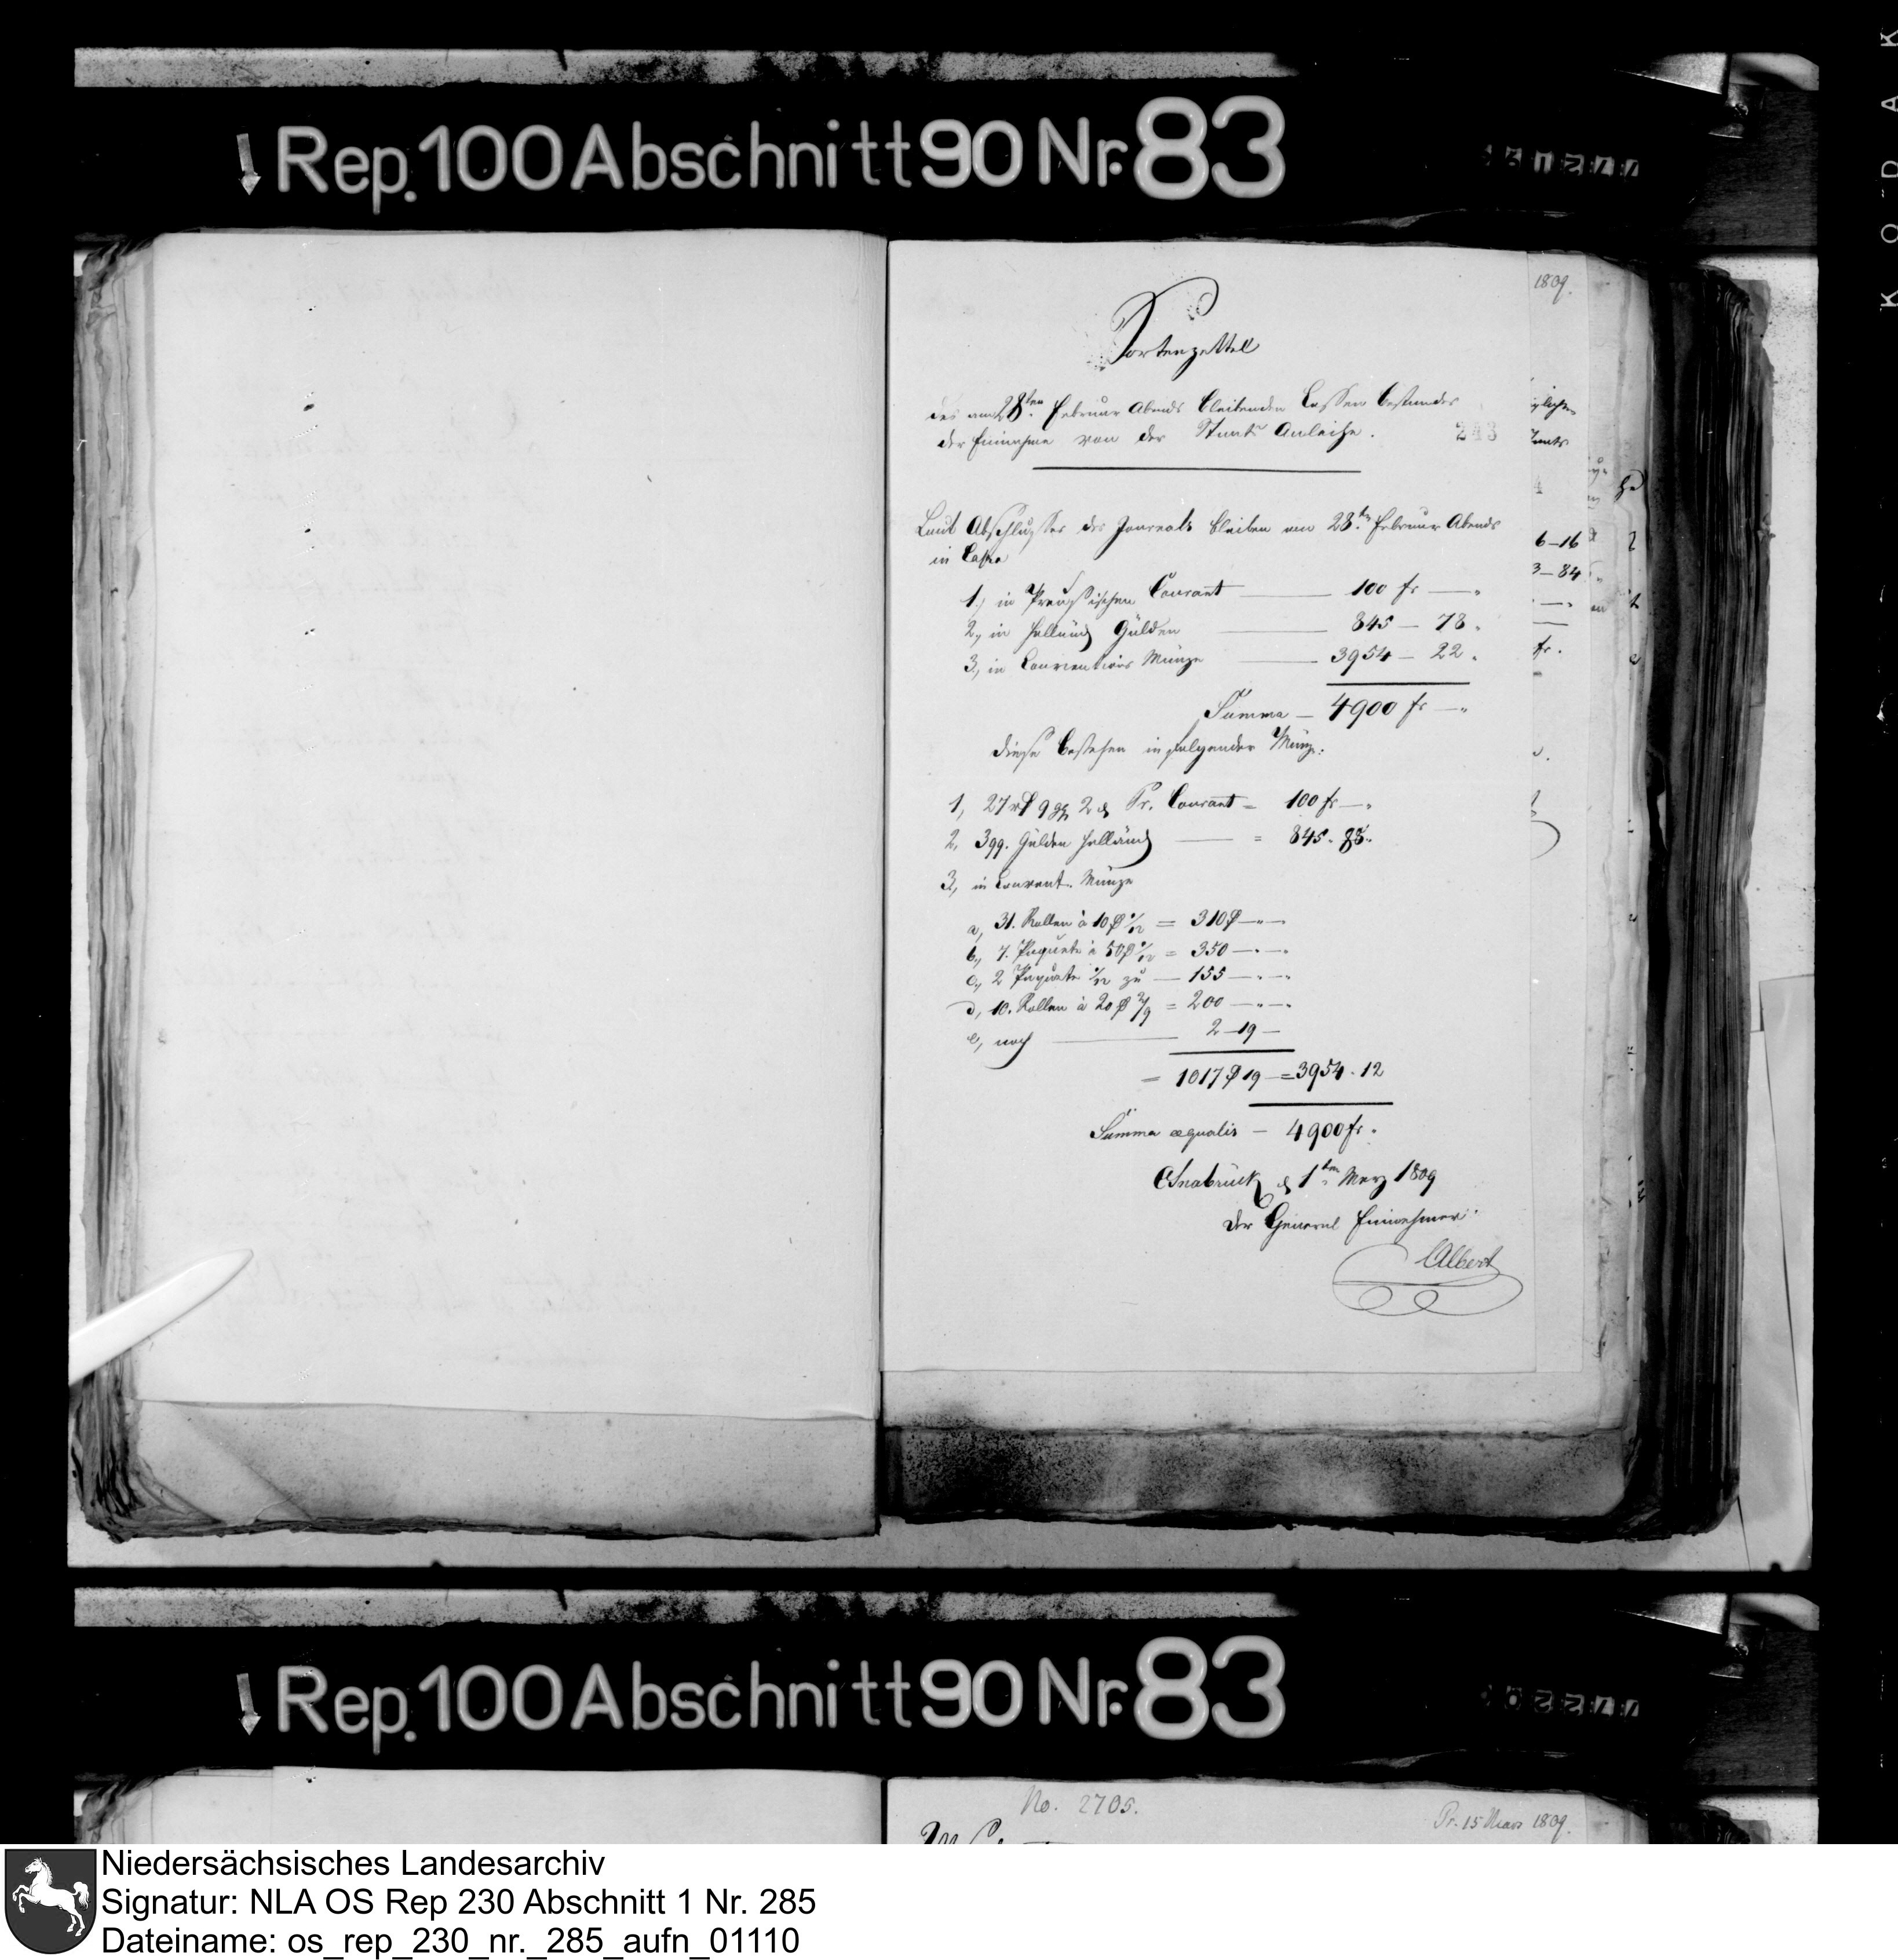 Rep. 100 Abschnitt 90 Nr. 83
1809.
Sortenzettel
des am 28ten Februar Abends bleibenden Cassen bestandes
der Einnahme von der Staats Anleihe.
243
Laut Abschlußes des Journals bleiben am 28ten Februar Abends
in Cassa
1.) in Preußischen Courant — 100 fr —„
2., in Holländ Gülden — 845 — 78.
3., in Conventions Münze — 3954 — 22.
Summa — 4900 fr —„
diese bestehen in folgender Münze:
1, 27 rthl 9 ggr 2 d Pr. Courant = 100 fr —„
2. 399. Gülden Holländ — = 845. 88.
3, in Convent. Münze
a, 31. Rollen à 10 rthl 1/12 = 310 rthl —„—
b., 7. Paquete à 50 rthl 1/12 = 350 —„—
c., 2 Paquete 1/12 zu — 155 —„—
d, 10. Rollen à 20 rthl 2/3 = 200 —„—
e, noch — 2 — 19 —
= 1017 rthl 19 — = 3954. 12
Summa æqualis — 4900 fr.
Osnabrück d 1ten Merz 1809
der General Einnehmer
Albert
6—16
3—84
fr.
Rep. 100 Abschnitt 90 Nr. 83
No. 2705.
Pr. 15 März 1809.
Niedersächsisches Landesarchiv
Signatur: NLA OS Rep 230 Abschnitt 1 Nr. 285
Dateiname: os_rep_230_nr._285_aufn_01110
KODAK